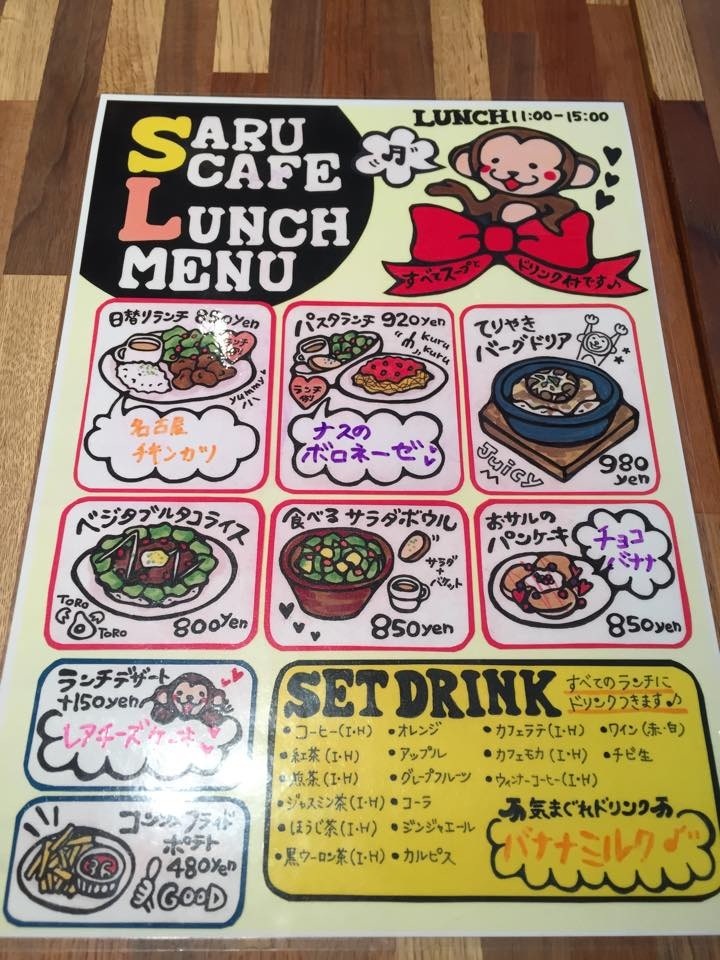 SARU
CAFE
LUNCH
MENU
LUNCH 11:00-15:00
すべてスープと
ドリンク付です♪
日替りランチ 850yen
ランチ
yummy
名古屋
チキンカツ
パスタランチ 920yen
kuru
kuru
ランチ
ナスの
ボロネーゼ
てりやき
バーグドリア
Juicy
980
yen
ベジタブルタコライス
TORO
TORO
800yen
食べるサラダボウル
サラダ
+
バケット
850yen
おサルの
パンケーキ
チョコ
バナナ
850yen
ランチデザート
+150yen
レアチーズケーキ
フライド
ポテト
480yen
GOOD
SET DRINK
すべてのランチに
ドリンクつきます♪
・コーヒー(I・H)
・紅茶(I・H)
・煎茶(I・H)
・ジャスミン茶(I・H)
・ほうじ茶(I・H)
・黒ウーロン茶(I・H)
・オレンジ
・アップル
・グレープフルーツ
・コーラ
・ジンジャエール
・カルピス
・カフェラテ(I・H)
・カフェモカ(I・H)
・ウィンナーコーヒー(I・H)
・ワイン(赤・白)
・チビ生
気まぐれドリンク
バナナミルク♪